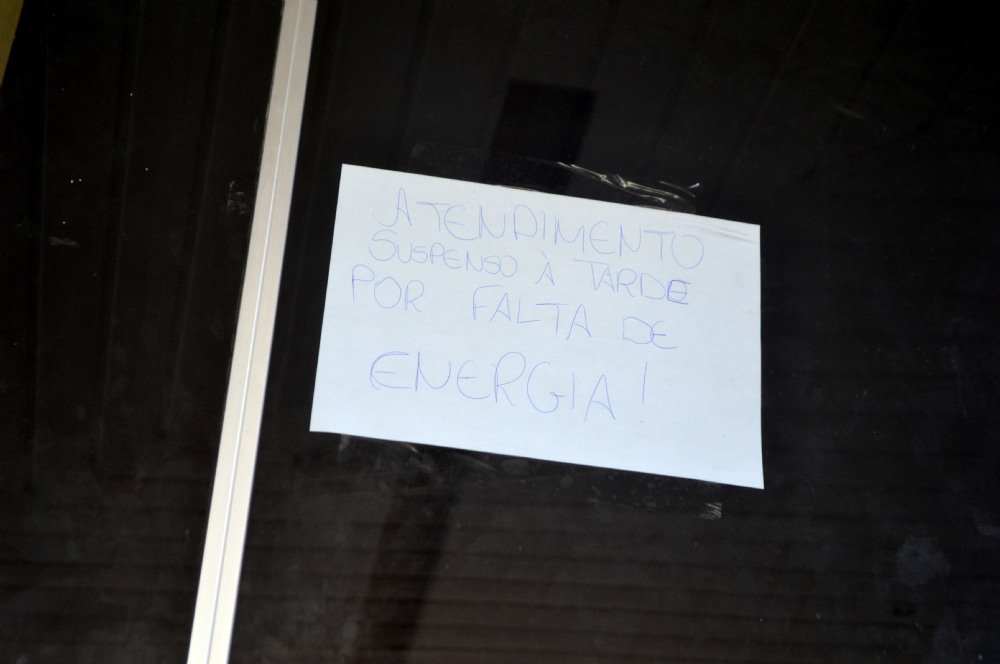 ATENDIMENTO
SUSPENSO À TARDE
POR FALTA DE
ENERGIA!